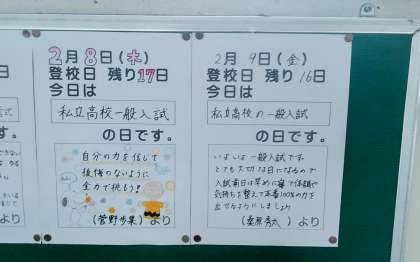 2月8日(木)
登校日 残り17日
今日は
私立高校一般入試
の日です。
自分の力を信じて
後悔のないように
全力で挑もう!!
(菅野歩果)より
2月9日(金)
登校日 残り16日
今日は
私立高校の一般入試
の日です。
いよいよ一般入試です。
とても大切な日になるので
入試前日は早めに寝て体調や
気持ちを整えて本番100%の力を
出せるようにしましょう
(桑原秀太)より